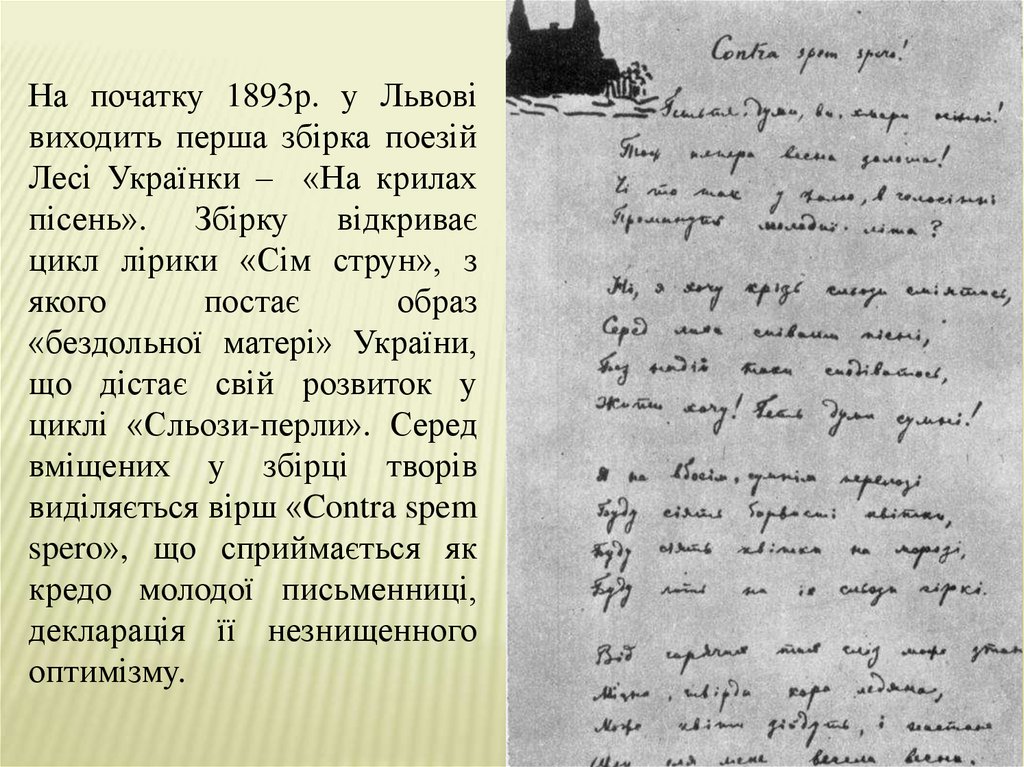 На початку 1893р. у Львові
виходить перша збірка поезій
Лесі Українки – «На крилах
пісень». Збірку відкриває
цикл лірики «Сім струн», з
якого постає образ
«бездольної матері» України,
що дістає свій розвиток у
циклі «Сльози-перли». Серед
вміщених у збірці творів
виділяється вірш «Contra spem
spero», що сприймається як
кредо молодої письменниці,
декларація її незнищенного
оптимізму.
Contra spem spero!
Гетьте, думи, ви, хмари осінні!
Тож тепера весна золота!
Чі то так у жалю, в голосінні
Проминуть молодиї літа?
Ні, я хочу крізь сльози сміятись,
Серед лиха співати пісні,
Без надій таки сподіватись,
Жити хочу! Геть думи сумні!
Я на вбогім, сумнім перелозі
Буду сіять барвисті квітки,
Буду сіять квітки на морозі,
Буду лить на їх сльози гіркі.
Від гарячих тих сліз може зтане
Міцна, твірда кора ледяна,
Може квіти зійдуть, і настане
Ще для мене весела весна.